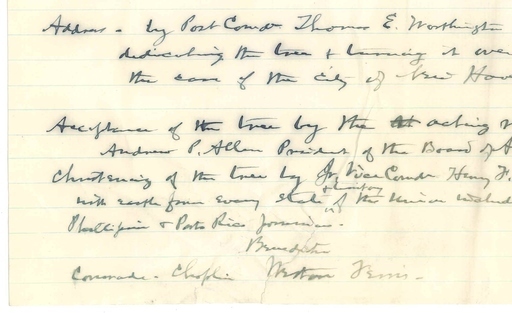 Address - by Post Comdr Thomas E. Worthington
dedicating the tree & turning it over
the care of the city of New Hav
Acceptance of the tree by the acting
Andrew P. Allen President of the Board of A
Christening of the tree by Jr Vice Comdr Henry F.
with earth from every state & territory of the Union includ
Phillipine & Porto Rico
Benediction
Comrade - Chaplin